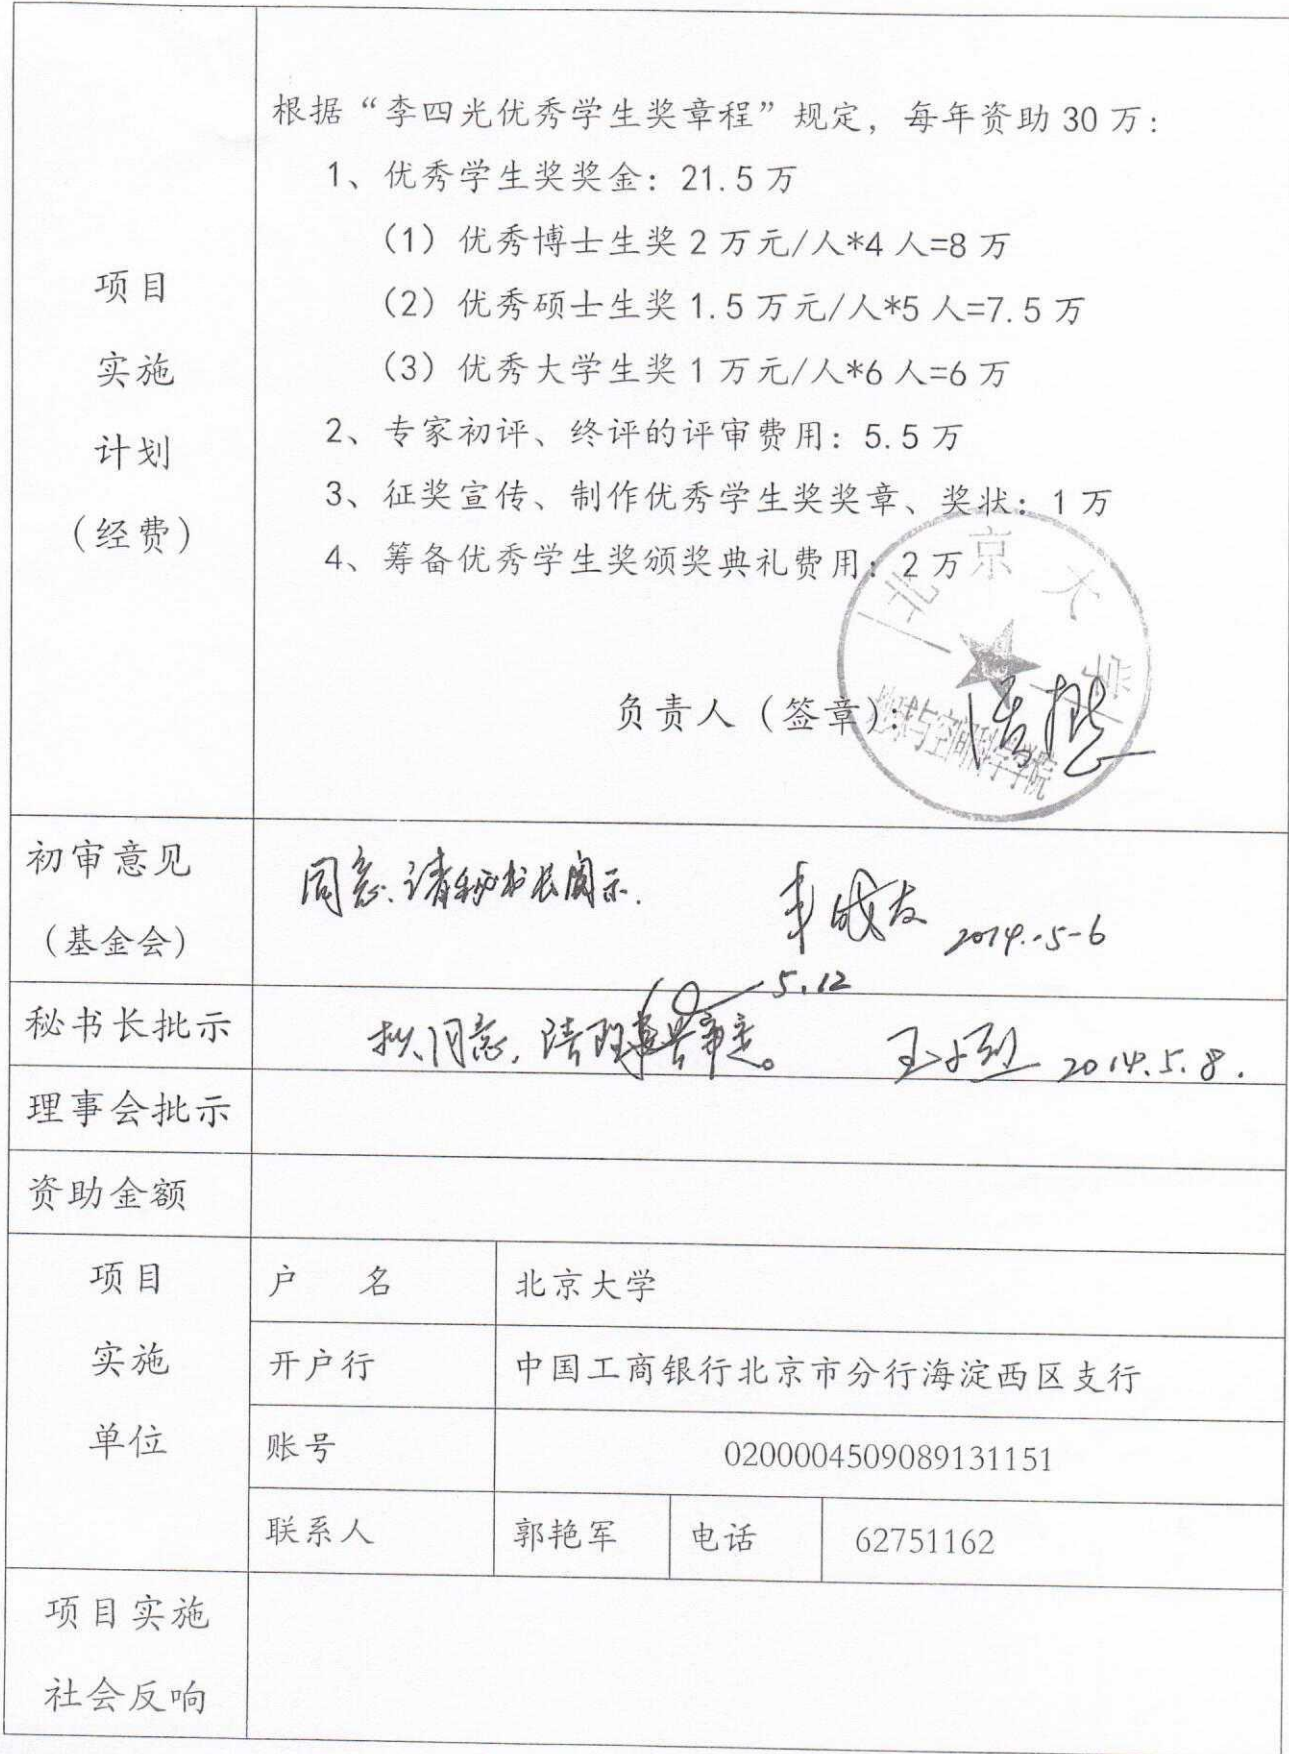 根据“李四光优秀学生奖章程”规定，每年资助30万：
1、优秀学生奖奖金：21.5万
（1）优秀博士生奖2万元/人*4人=8万
（2）优秀硕士生奖1.5万元/人*5人=7.5万
（3）优秀大学生奖1万元/人*6人=6万
2、专家初评、终评的评审费用：5.5万
3、征奖宣传、制作优秀学生奖奖章、奖状：1万
4、筹备优秀学生奖颁奖典礼费用：2万
项目
实施
计划
（经费）
北京大学
地球与空间科学学院
负责人（签章）：
初审意见
（基金会）
同意.请秘书长阅示.
2014.-5-6
5.12
秘书长批示
拟同意,请理事长审定。
2014.5.8.
理事会批示
资助金额
项目
实施
单位
户 名 北京大学
开户行 中国工商银行北京市分行海淀西区支行
账号 0200004509089131151
联系人 郭艳军 电话 62751162
项目实施
社会反响